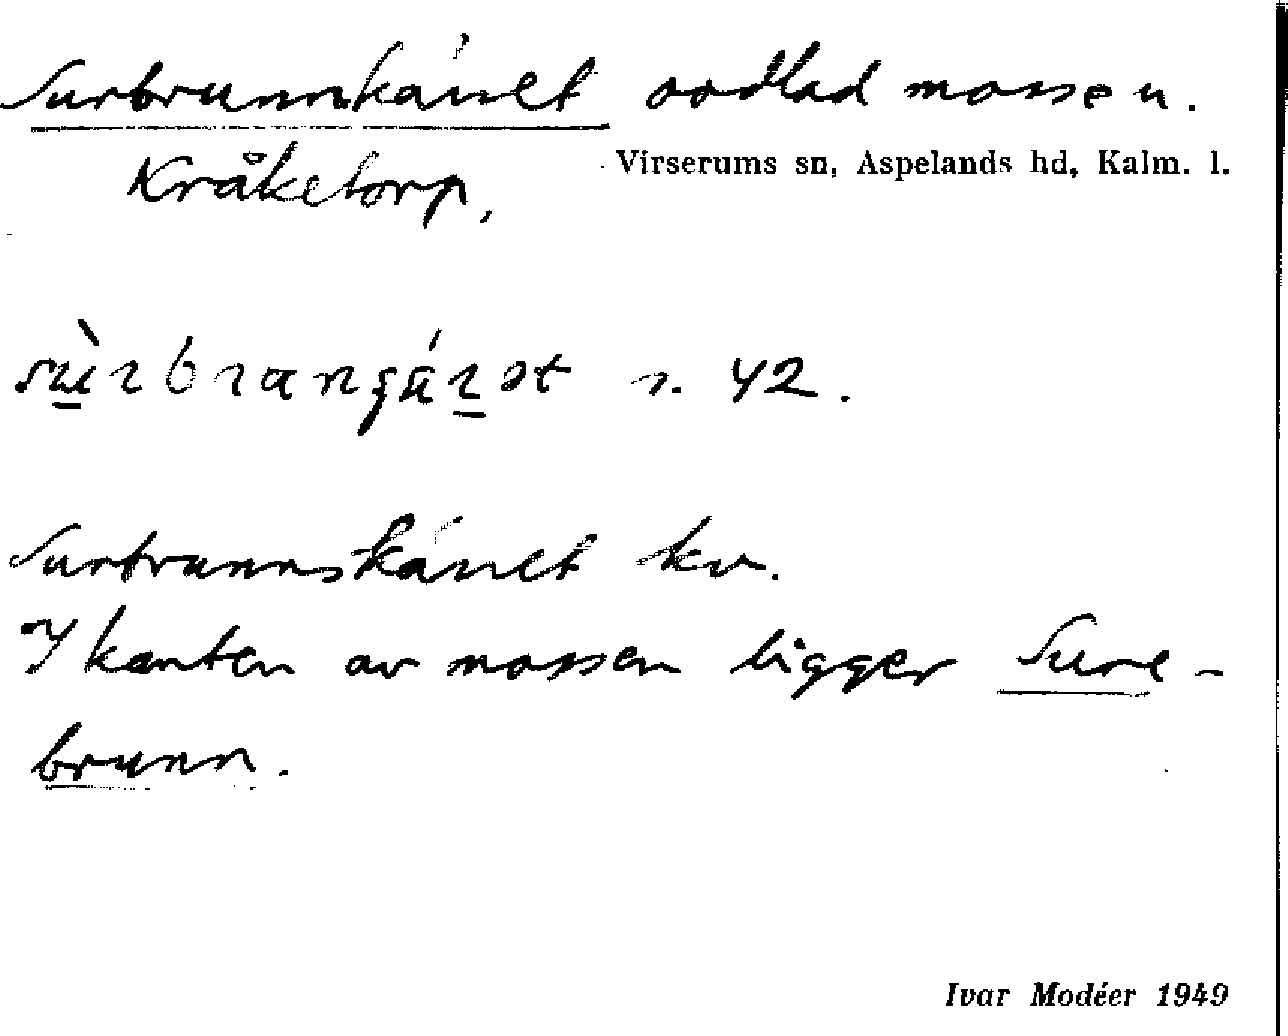 Surbrunnkánet oodlad mossen.
Kråketorp,
Virserums sn, Aspelands hd, Kalm. l.
s. 42.
Surbrunnskánet kv.
I kanten av mossen ligger Sure-
brunn.
Ivar Modéer 1949